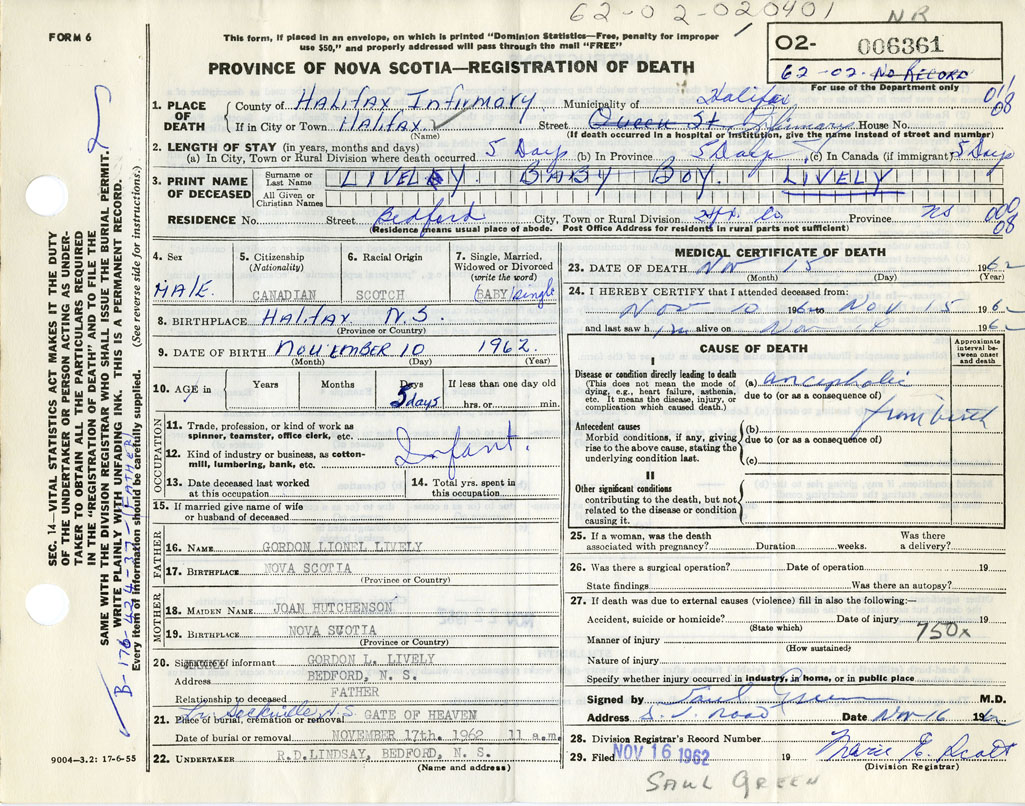 62-02-020401 NR
FORM 6
This form, if placed in an envelope, on which is printed "Dominion Statistics—Free, penalty for improper
use $50," and properly addressed will pass through the mail "FREE"
02- 006361
62-02- No Record
For use of the Department only
PROVINCE OF NOVA SCOTIA—REGISTRATION OF DEATH
1. PLACE OF DEATH
County of Halifax Infirmary Municipality of Halifax 01/08
If in City or Town Halifax Street Queen St Infirmary House No.
(Name) (If death occurred in a hospital or institution, give the name instead of street and number)
2. LENGTH OF STAY (in years, months and days)
(a) In City, Town or Rural Division where death occurred 5 Days (b) In Province 5 Days (c) In Canada (if immigrant) 5 Days
3. PRINT NAME OF DECEASED
Surname or Last Name LIVELY. BABY BOY. LIVELY
All Given or Christian Names
RESIDENCE No. Street Bedford City, Town or Rural Division Hfx. Co. Province NS 000/08
(Residence means usual place of abode. Post Office Address for residents in rural parts not sufficient)
4. Sex
MALE.
5. Citizenship
(Nationality)
CANADIAN
6. Racial Origin
SCOTCH
7. Single, Married,
Widowed or Divorced
(write the word)
(BABY) single
8. BIRTHPLACE Halifax N.S.
(Province or Country)
9. DATE OF BIRTH November 10 1962.
(Month) (Day) (Year)
10. AGE in Years Months Days If less than one day old
5 days hrs. or min.
OCCUPATION
11. Trade, profession, or kind of work as
spinner, teamster, office clerk, etc.
Infant.
12. Kind of industry or business, as cotton-
mill, lumbering, bank, etc.
13. Date deceased last worked
at this occupation
14. Total yrs. spent in
this occupation
15. If married give name of wife
or husband of deceased
FATHER
16. NAME GORDON LIONEL LIVELY
17. BIRTHPLACE NOVA SCOTIA
(Province or Country)
MOTHER
18. MAIDEN NAME JOAN HUTCHENSON
19. BIRTHPLACE NOVA SCOTIA
(Province or Country)
20. Signature of informant GORDON L. LIVELY
Address BEDFORD, N. S.
Relationship to deceased FATHER
Sackville, N.S.
21. Place of burial, cremation or removal GATE OF HEAVEN
Date of burial or removal NOVEMBER 17th. 1962 11 a.m.
22. UNDERTAKER R.D.LINDSAY, BEDFORD, N. S.
(Name and address)
MEDICAL CERTIFICATE OF DEATH
23. DATE OF DEATH Nov 15 1962
(Month) (Day) (Year)
24. I HEREBY CERTIFY that I attended deceased from:
Nov 10 1962 to Nov 15 1962
and last saw him alive on Nov 14 1962
CAUSE OF DEATH
Approximate
interval be-
tween onset
and death
I
Disease or condition directly leading to death
(This does not mean the mode of
dying, e.g., heart failure, asthenia,
etc. It means the disease, injury, or
complication which caused death.)
(a) ancephalic
due to (or as a consequence of)
from birth
Antecedent causes
Morbid conditions, if any, giving
rise to the above cause, stating the
underlying condition last.
(b)
due to (or as a consequence of)
(c)
II
Other significant conditions
contributing to the death, but not
related to the disease or condition
causing it.
25. If a woman, was the death Was there
associated with pregnancy? Duration weeks. a delivery?
26. Was there a surgical operation? Date of operation 19
State findings Was there an autopsy?
27. If death was due to external causes (violence) fill in also the following:—
Accident, suicide or homicide? Date of injury 19
(State which) 750x
Manner of injury
(How sustained)
Nature of injury
Specify whether injury occurred in industry, in home, or in public place
Signed by Saul Green M.D.
Address Date Nov 16 1962
28. Division Registrar's Record Number
29. Filed NOV 16 1962 19 Marie E. Scott
(Division Registrar)
SAUL GREEN
9004—3.2: 17-6-55
SEC. 14—VITAL STATISTICS ACT MAKES IT THE DUTY
OF THE UNDERTAKER OR PERSON ACTING AS UNDER-
TAKER TO OBTAIN ALL THE PARTICULARS REQUIRED
IN THE "REGISTRATION OF DEATH" AND TO FILE THE
SAME WITH THE DIVISION REGISTRAR WHO SHALL ISSUE THE BURIAL PERMIT.
WRITE PLAINLY WITH UNFADING INK. THIS IS A PERMANENT RECORD.
B-176-424-37-FATHER
Every item of information should be carefully supplied. (See reverse side for instructions.)